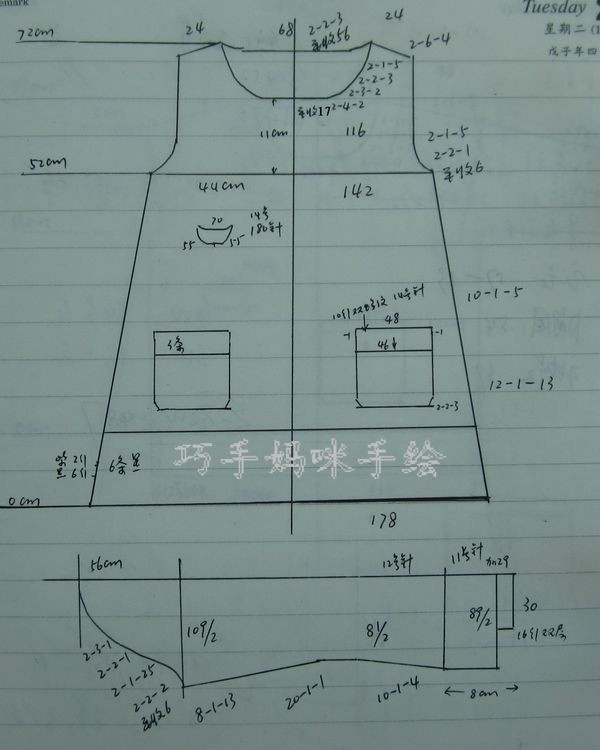 emark
Tuesday
星期二 (1
戊子年四
72cm
24
68
2-2-3
平收56
24
2-6-4
2-1-5
2-2-3
2-3-2
平收17 2-4-2
11cm
116
2-1-5
2-2-1
平收6
52cm
44cm
142
70
14号
180针
55
55
10-1-5
14号针
48
-1
-1
5条
46
12-1-13
2-2-3
6条
巧手妈咪手绘
0cm
178
56cm
12号针
11号针
加29
109/2
81/2
89/2
30
2-3-1
2-2-1
2-1-25
2-2-2
平收6
8-1-13
20-1-1
10-1-4
8cm